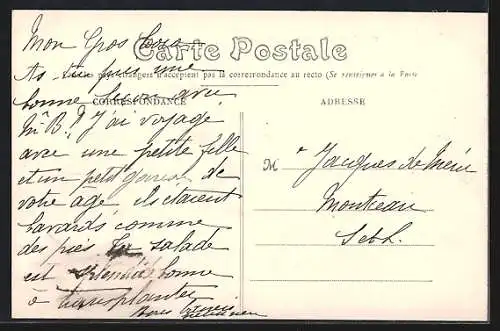 Carte Postale
étrangers n'acceptent pas la correspondance au recto (Se renseigner à la Poste
CORRESPONDANCE
ADRESSE
Mon Gros
As tu pris une
bonne leçon avec
Mr B.? J'ai voyagé
avec une petite fille
et un petit garçon de
votre âge ils étaient
bavards comme
des pies. La salade
est splendide bonne
à transplanter
Bons
M r Jacques de
Montceau
S et L.